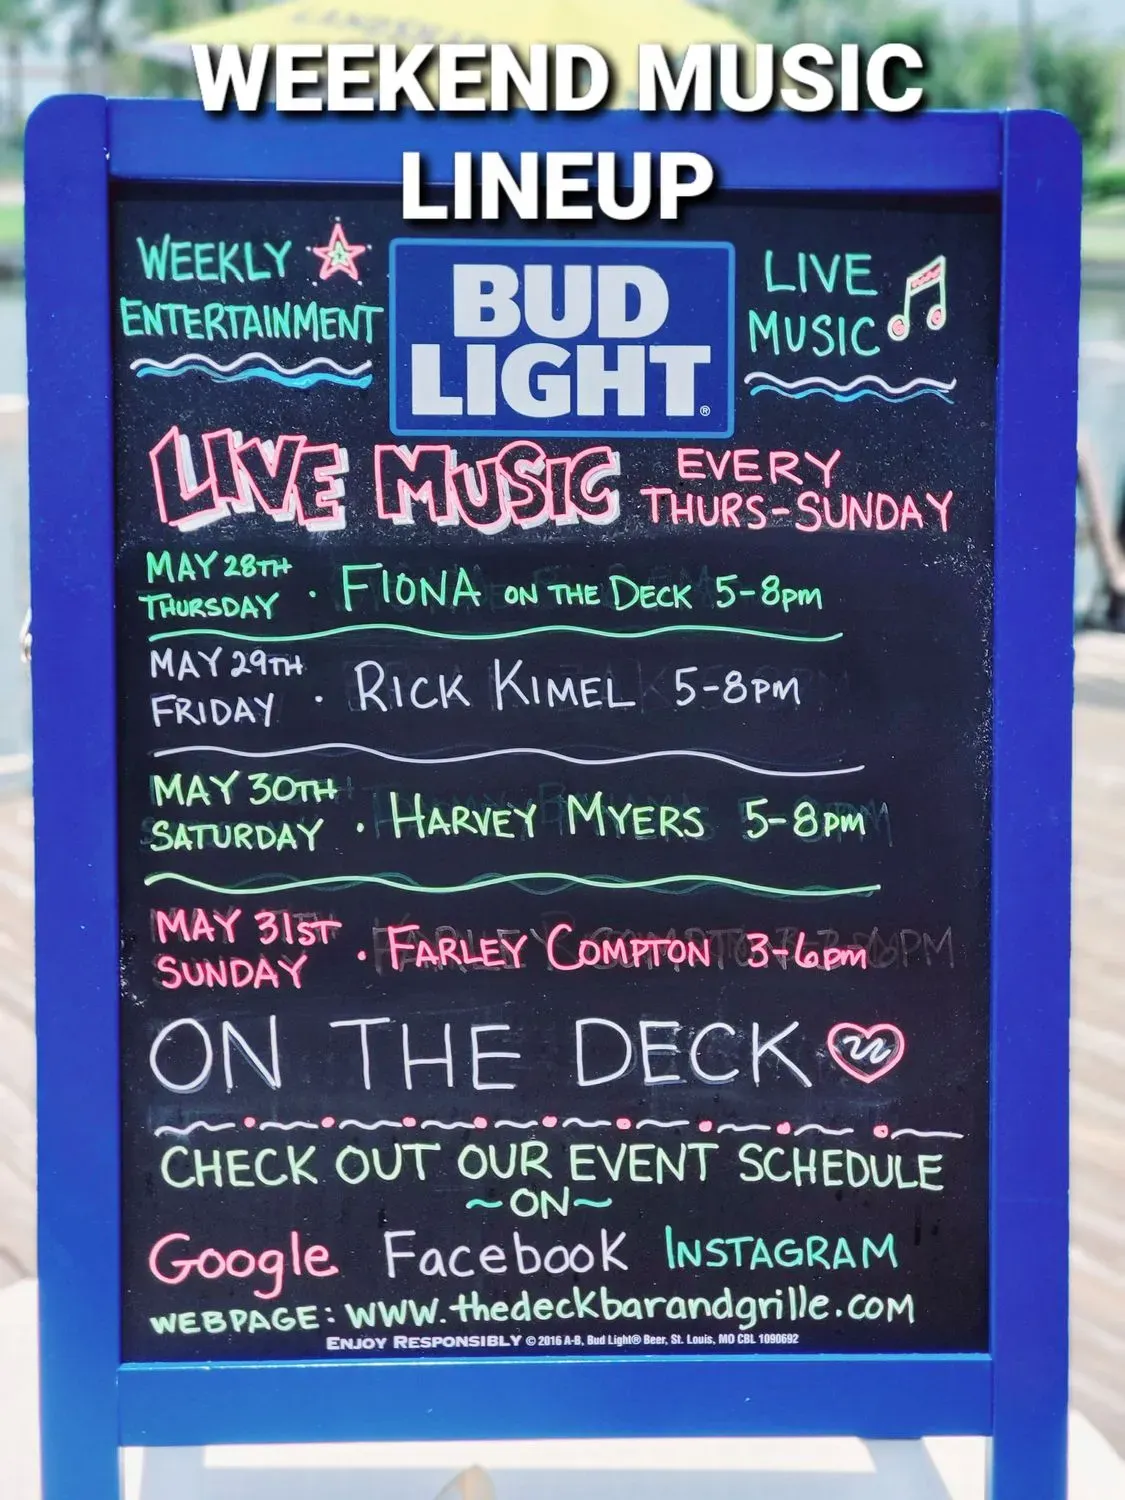 WEEKEND MUSIC
LINEUP
WEEKLY
ENTERTAINMENT
BUD
LIGHT®
LIVE
MUSIC
LIVE MUSIC
EVERY
THURS-SUNDAY
MAY 28TH
THURSDAY · FIONA ON THE DECK 5-8pm
MAY 29TH
FRIDAY · RICK KIMEL 5-8PM
MAY 30TH
SATURDAY · HARVEY MYERS 5-8pm
MAY 31ST
SUNDAY · FARLEY COMPTON 3-6pm
ON THE DECK
CHECK OUT OUR EVENT SCHEDULE
~ON~
Google Facebook INSTAGRAM
WEBPAGE: www.thedeckbarandgrille.com
ENJOY RESPONSIBLY © 2016 A-B, Bud Light® Beer, St. Louis, MO CBL 1090692